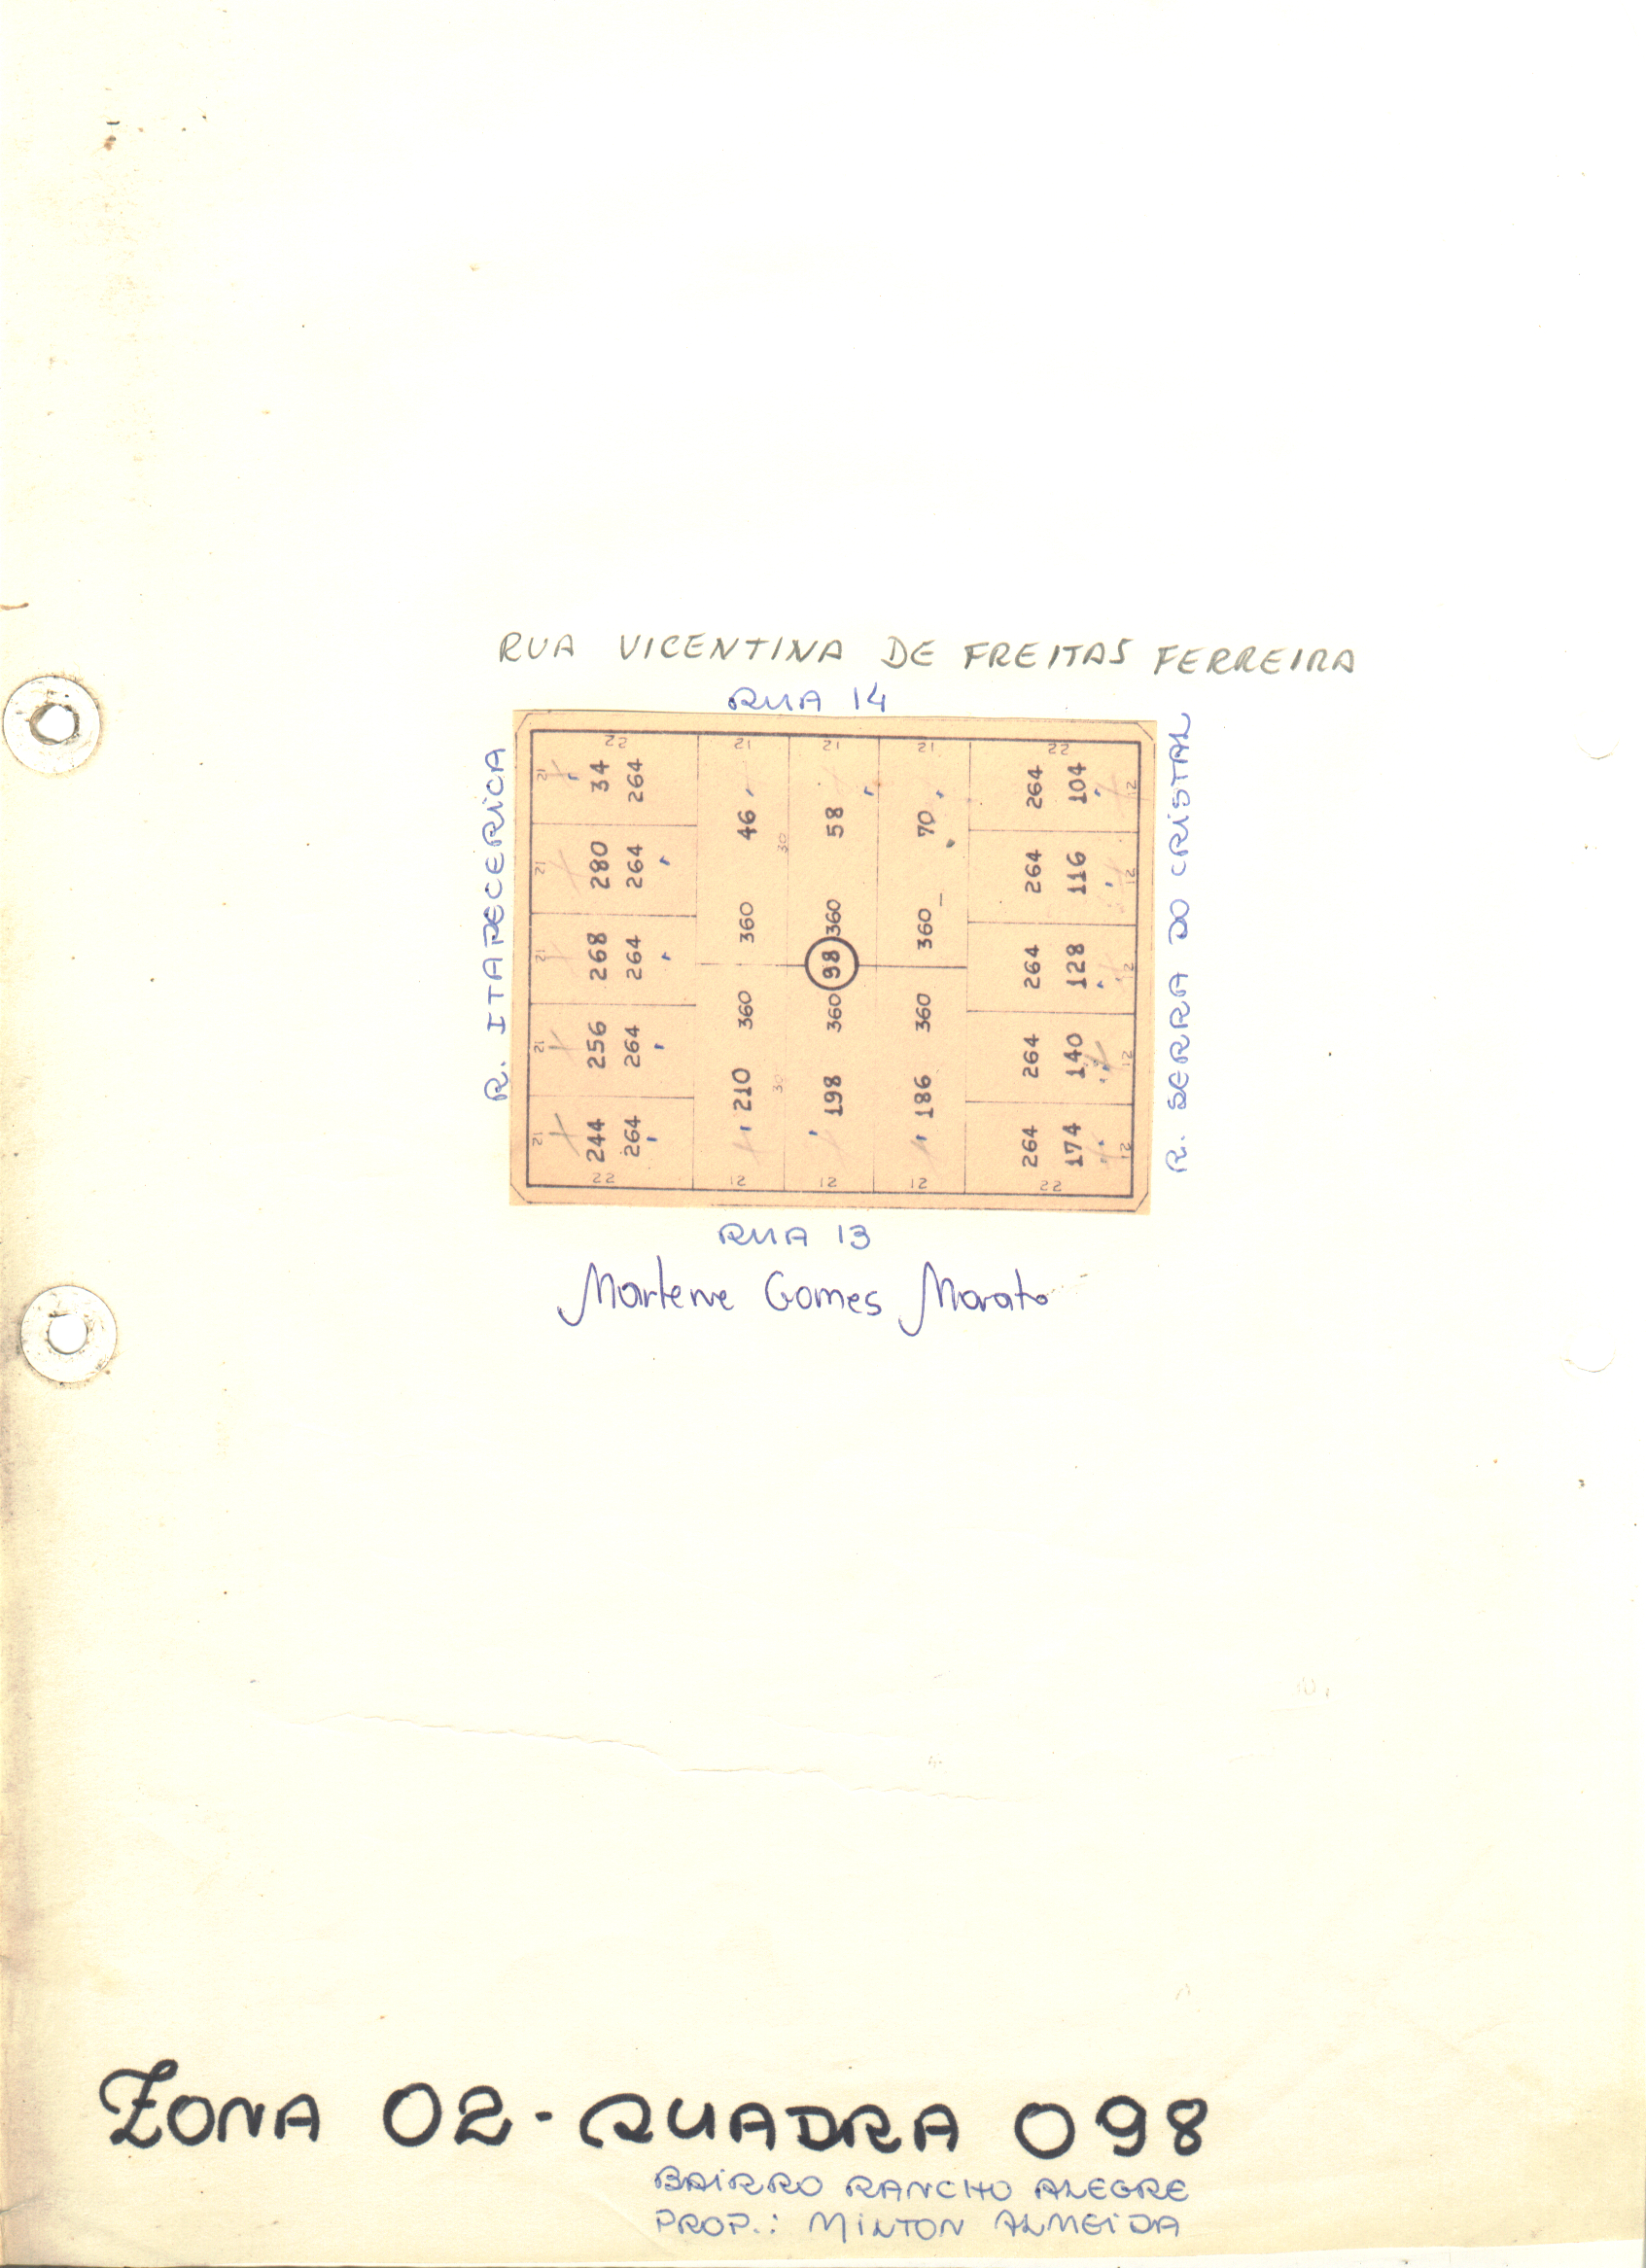 RUA VICENTINA DE FREITAS FERREIRA
RUA 14
R. ITAPECERICA
R. SERRA DO CRISTAL
22 21 21 21 22
12 34 264
12 280 264
12 268 264
12 256 264
12 244 264
22
46 360 30
58 360
70 360
98
210 360 30
198 360
186 360
12 12 12
264 104 12
264 116 12
264 128 12
264 140 12
264 174 12
22
RUA 13
Marlene Gomes Morato
ZONA 02 - QUADRA 098
BAIRRO RANCHO ALEGRE
PROP.: MILTON ALMEIDA